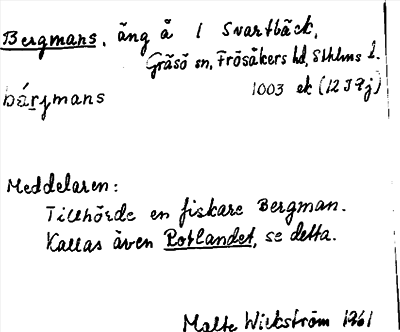 Bergmans, äng å 1 Svartbäck,
Gräsö sn, Frösåkers hd, Sthlms l.
1003 ek (12I7j)
bá̱rjmans
Meddelaren:
Tillhörde en fiskare Bergman.
Kallas även Rotlandet, se detta.
Malte Wickström 1961